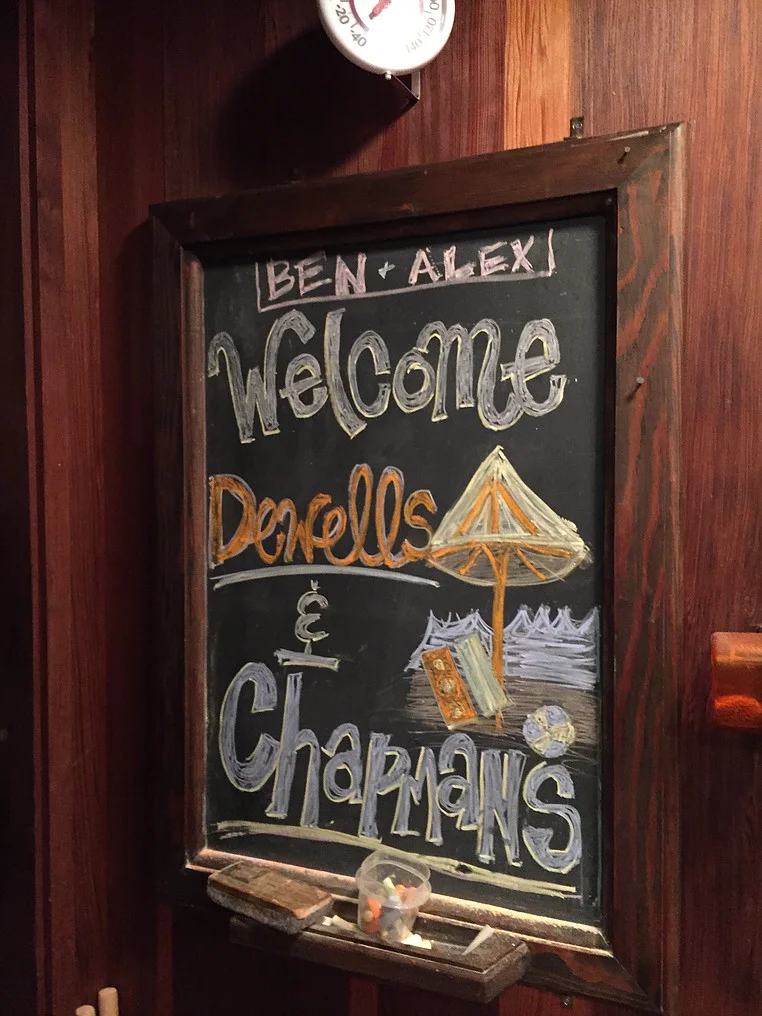 -20 -40 140 120
BEN + ALEX
Welcome
Dewells
&
Chapmans